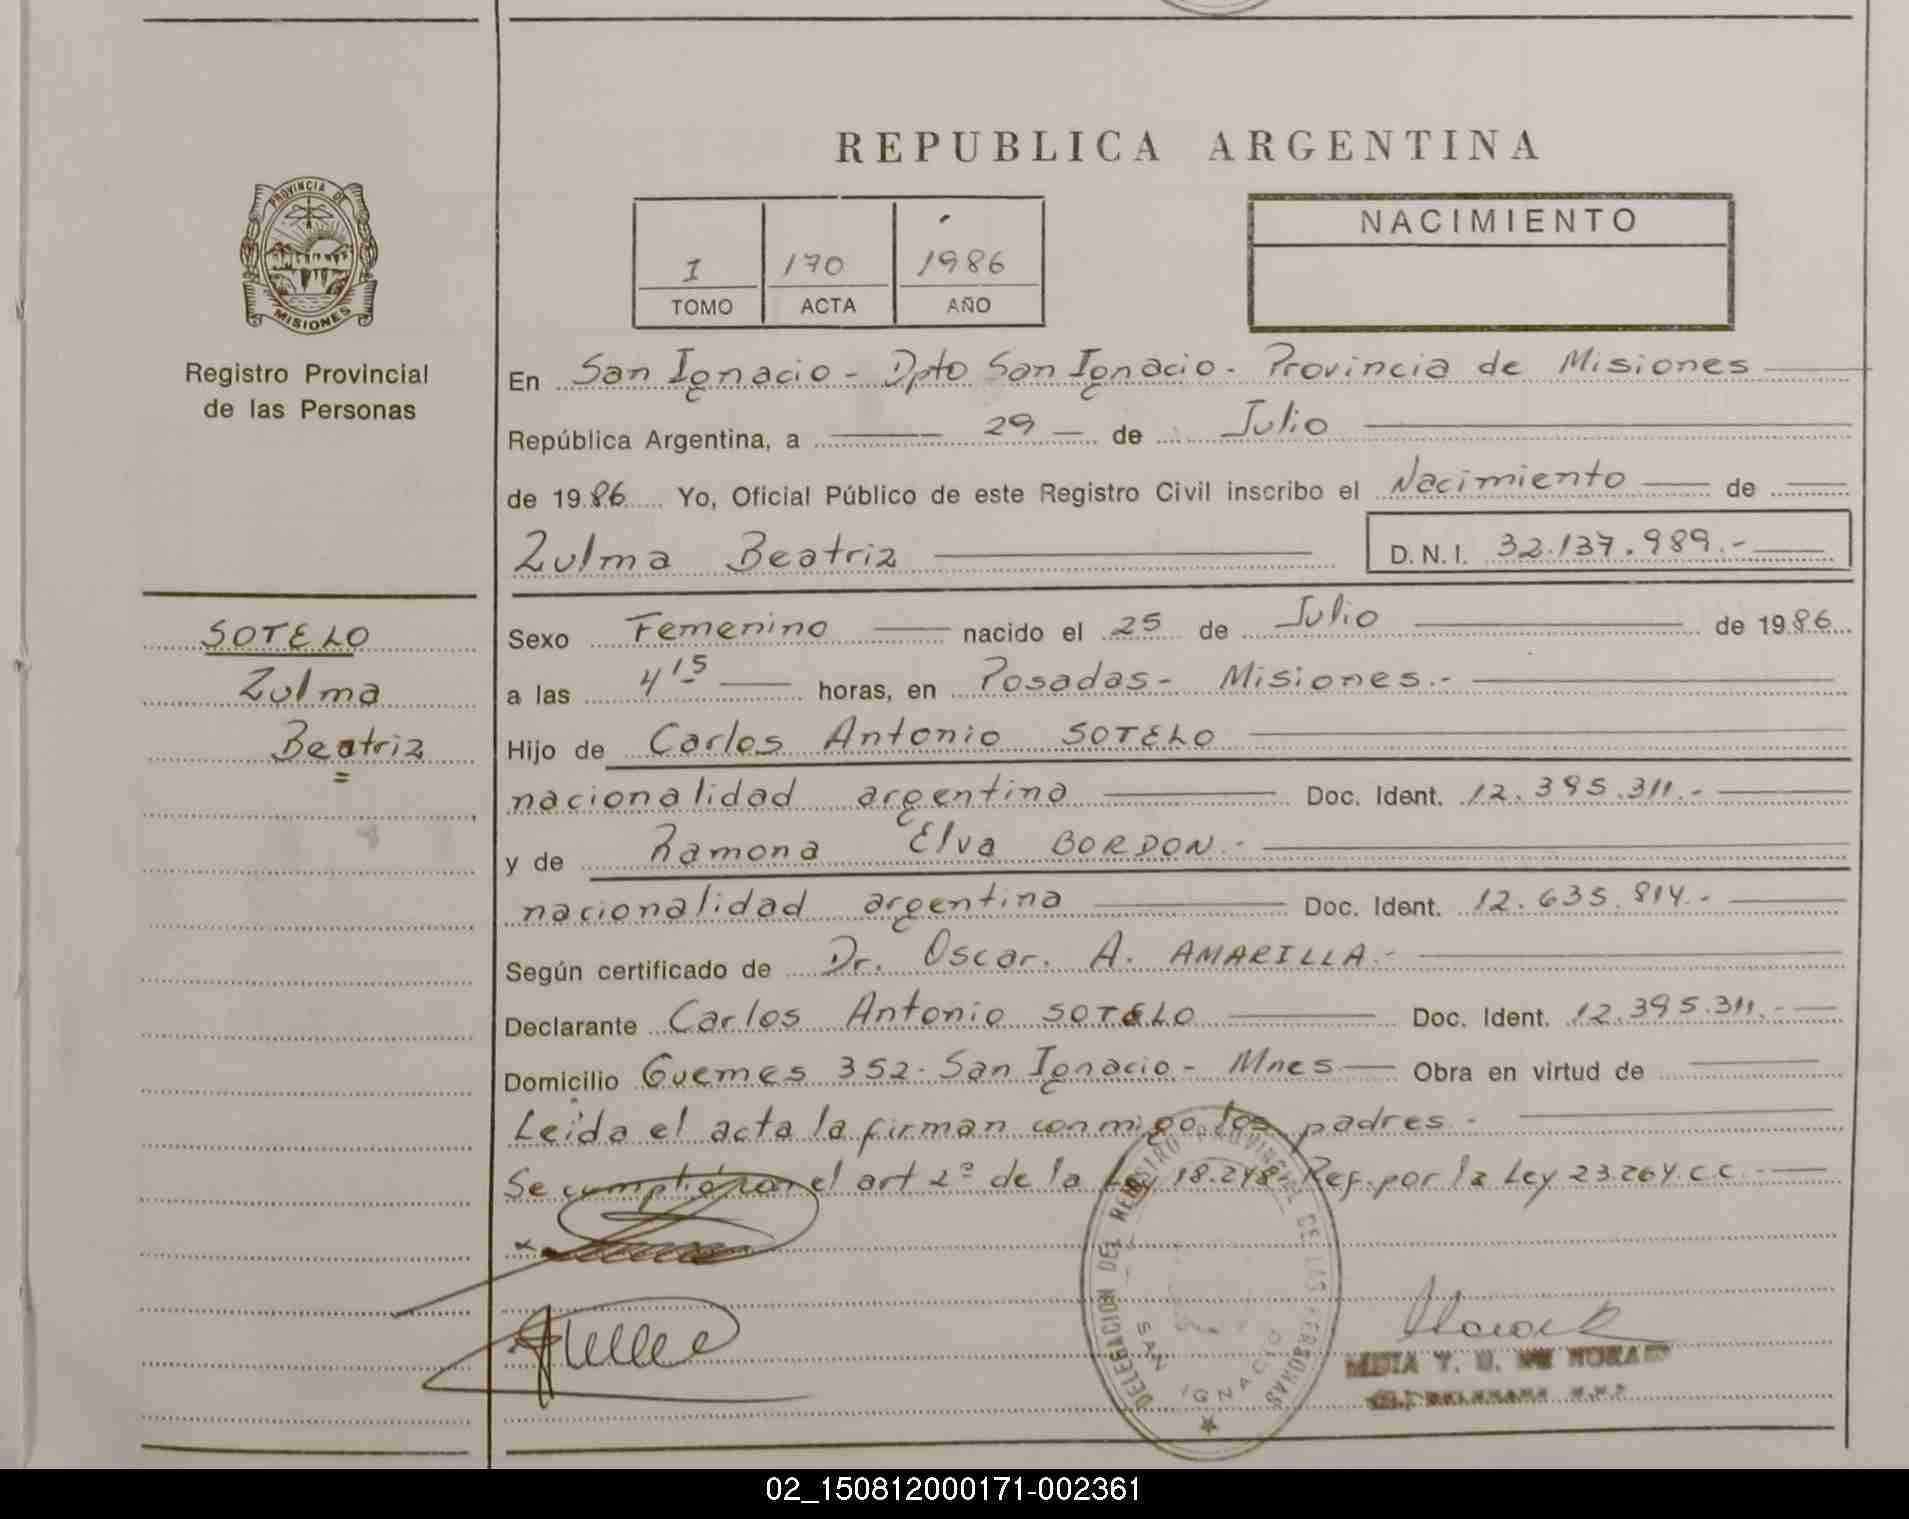 REPUBLICA ARGENTINA
PROVINCIA DE
MISIONES
Registro Provincial
de las Personas
1 170 1986
TOMO ACTA AÑO
NACIMIENTO
En San Ignacio - Dpto San Ignacio - Provincia de Misiones
República Argentina, a 29 de Julio
de 1986 Yo, Oficial Público de este Registro Civil inscribo el Nacimiento de
Zulma Beatriz D.N.I. 32.137.989.-
SOTELO
Zulma
Beatriz
Sexo Femenino nacido el 25 de Julio de 1986
a las 4 15 horas, en Posadas - Misiones.-
Hijo de Carlos Antonio SOTELO
nacionalidad argentina Doc. Ident. 12.395.311.-
y de Ramona Elva BORDON.-
nacionalidad argentina Doc. Ident. 12.635.814.-
Según certificado de Dr. Oscar. A. AMARILLA.-
Declarante Carlos Antonio SOTELO Doc. Ident. 12.395.311.-
Domicilio Guemes 352 - San Ignacio - Mnes Obra en virtud de
Leida el acta la firman conmigo los padres.-
Se cumplió con el art 2º de la Ley 18.248 - Ref. por la Ley 23.264 C.C.
DELEGACION DEL REGISTRO PROVINCIAL DE LAS PERSONAS
SAN IGNACIO
02_150812000171-002361